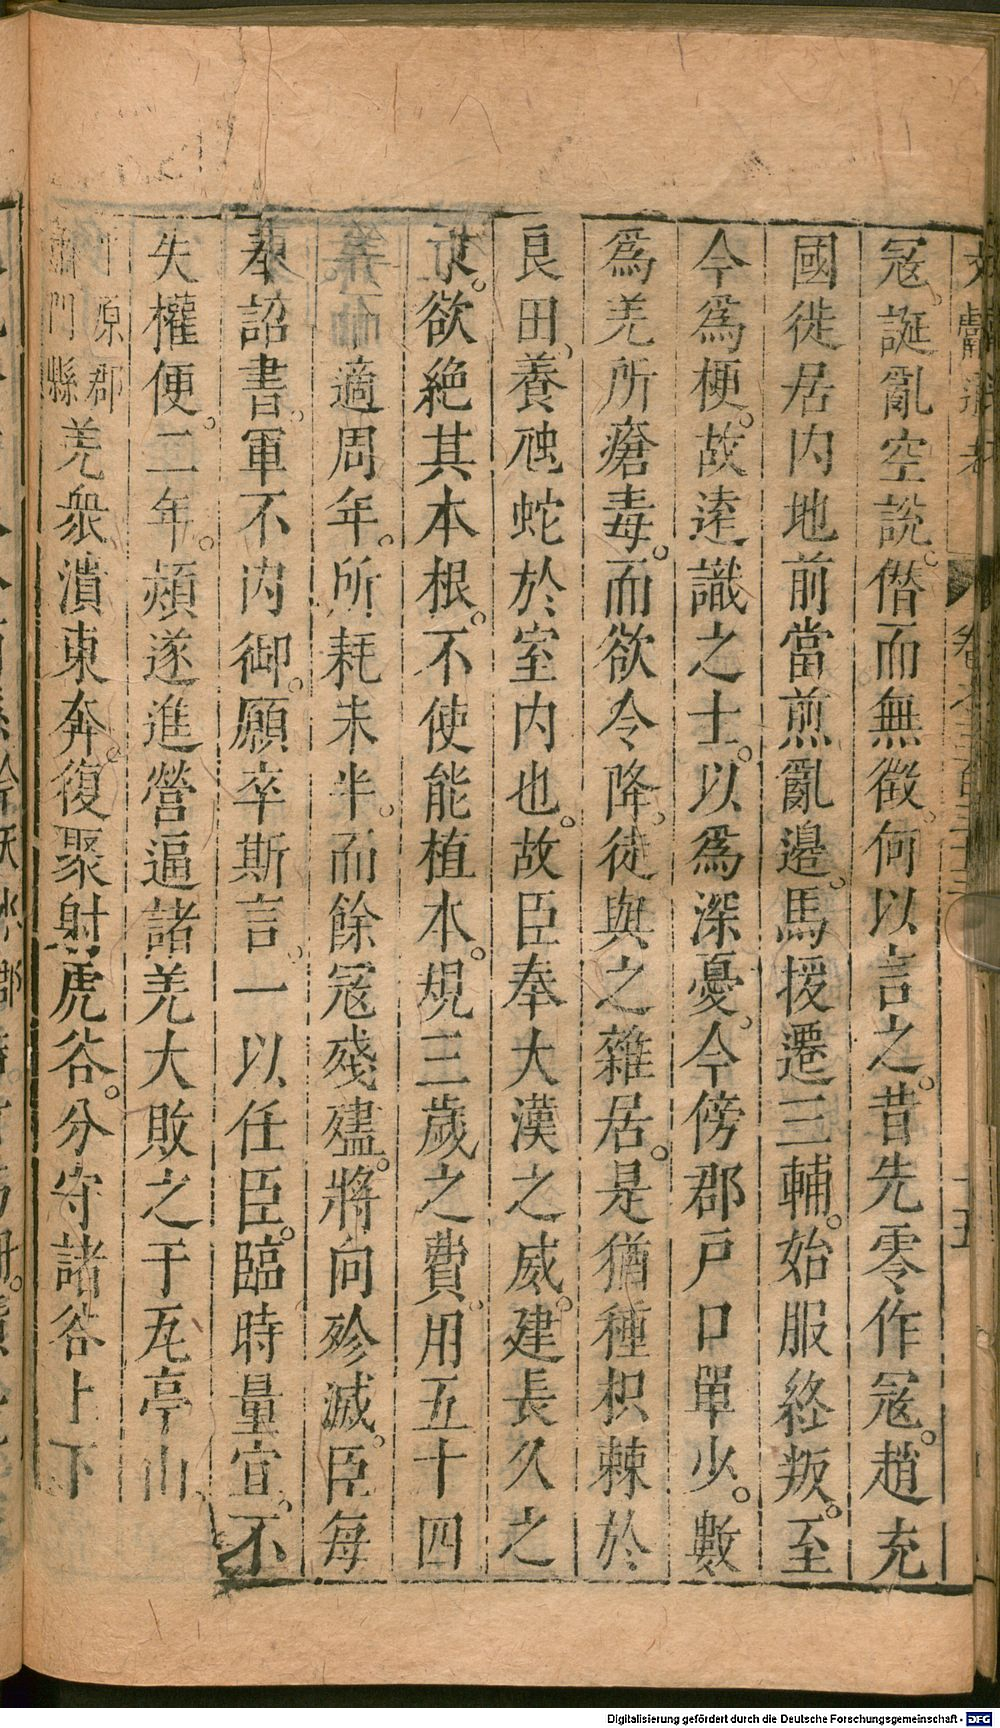 文獻通考 卷之三百三十三 十五
冦誕亂空說。僣而無徵。何以言之。昔先零作冦。趙充
國徙居内地前當煎亂邊。馬援遷三輔。始服終叛。至
今爲梗。故逺識之士。以爲深憂。今傍郡戸口單少。數
爲羌所瘡毒。而欲令降。徒與之雜居。是猶種枳棘於
良田、養虺蛇於室内也。故臣奉大漢之威。建長久之
欲絶其本根。不使能植本。規三歲之費。用五十四
適周年。所耗未半。而餘冦殘燼。將向殄滅。臣每
奉詔書。軍不内御。願卒斯言。一以任臣。臨時量宜。不
失權便。二年。熲遂進營逼諸羌大敗之于瓦亭山、
原郡門縣羌衆潰東奔。復聚射虎谷。分守諸谷上下
Digitalisierung gefördert durch die Deutsche Forschungsgemeinschaft - DFG